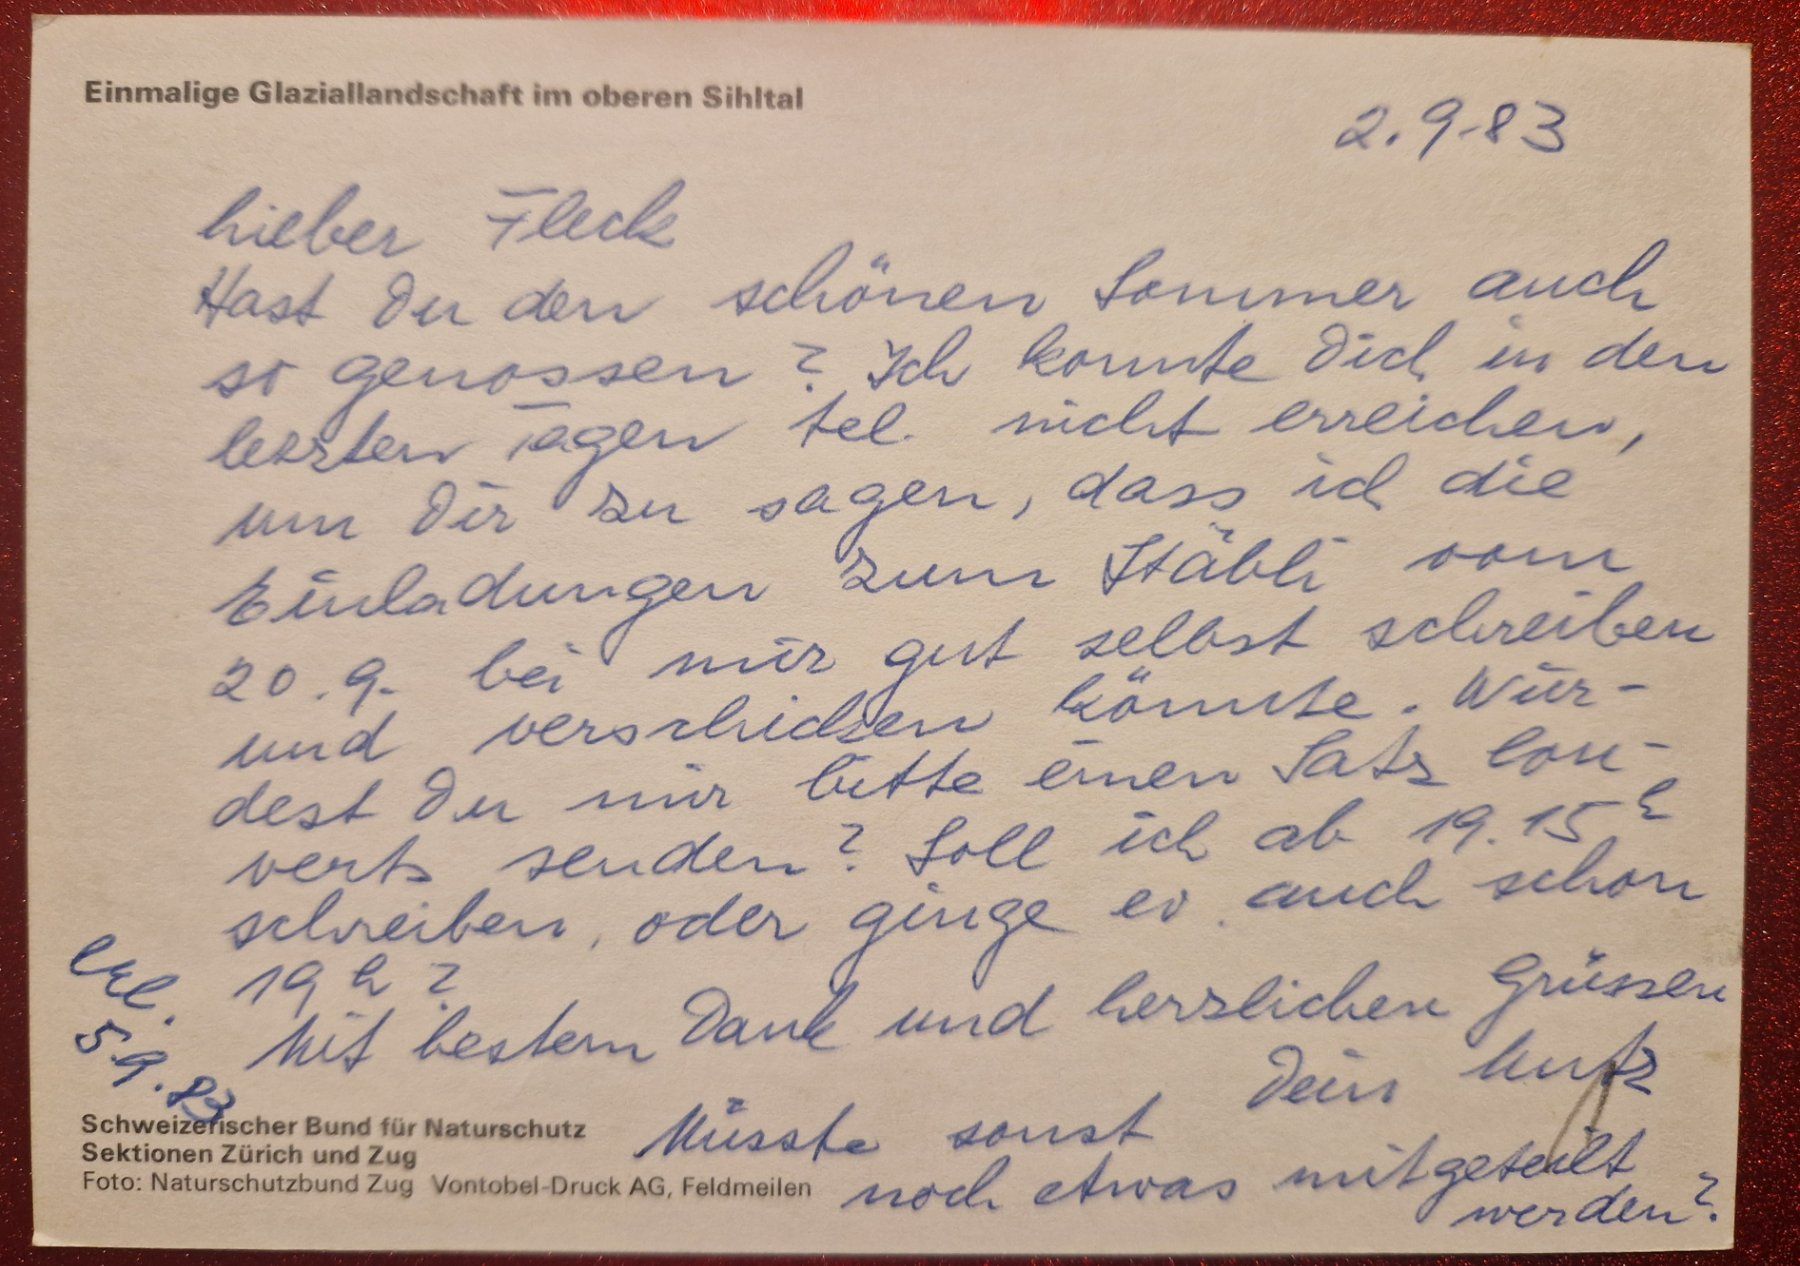 Einmalige Glaziallandschaft im oberen Sihltal
2.9.83
Lieber Fleck
Hast Du den schönen Sommer auch
so genossen? Ich konnte Dich in den
letzten Tagen tel. nicht erreichen,
um Dir zu sagen, dass ich die
Einladungen zum Stäbli vom
20.9. bei mir gut selbst schreiben
und verschicken könnte. Wür-
dest Du mir bitte einen Satz Cou-
verts senden? Soll ich ab 19.15 h
schreiben, oder ginge es auch schon
19 h?
Mit bestem Dank und herzlichen Grüssen
Dein Mutz
Müsste sonst
noch etwas mitgeteilt
werden?
erl.
5.9.83
Schweizerischer Bund für Naturschutz
Sektionen Zürich und Zug
Foto: Naturschutzbund Zug Vontobel-Druck AG, Feldmeilen